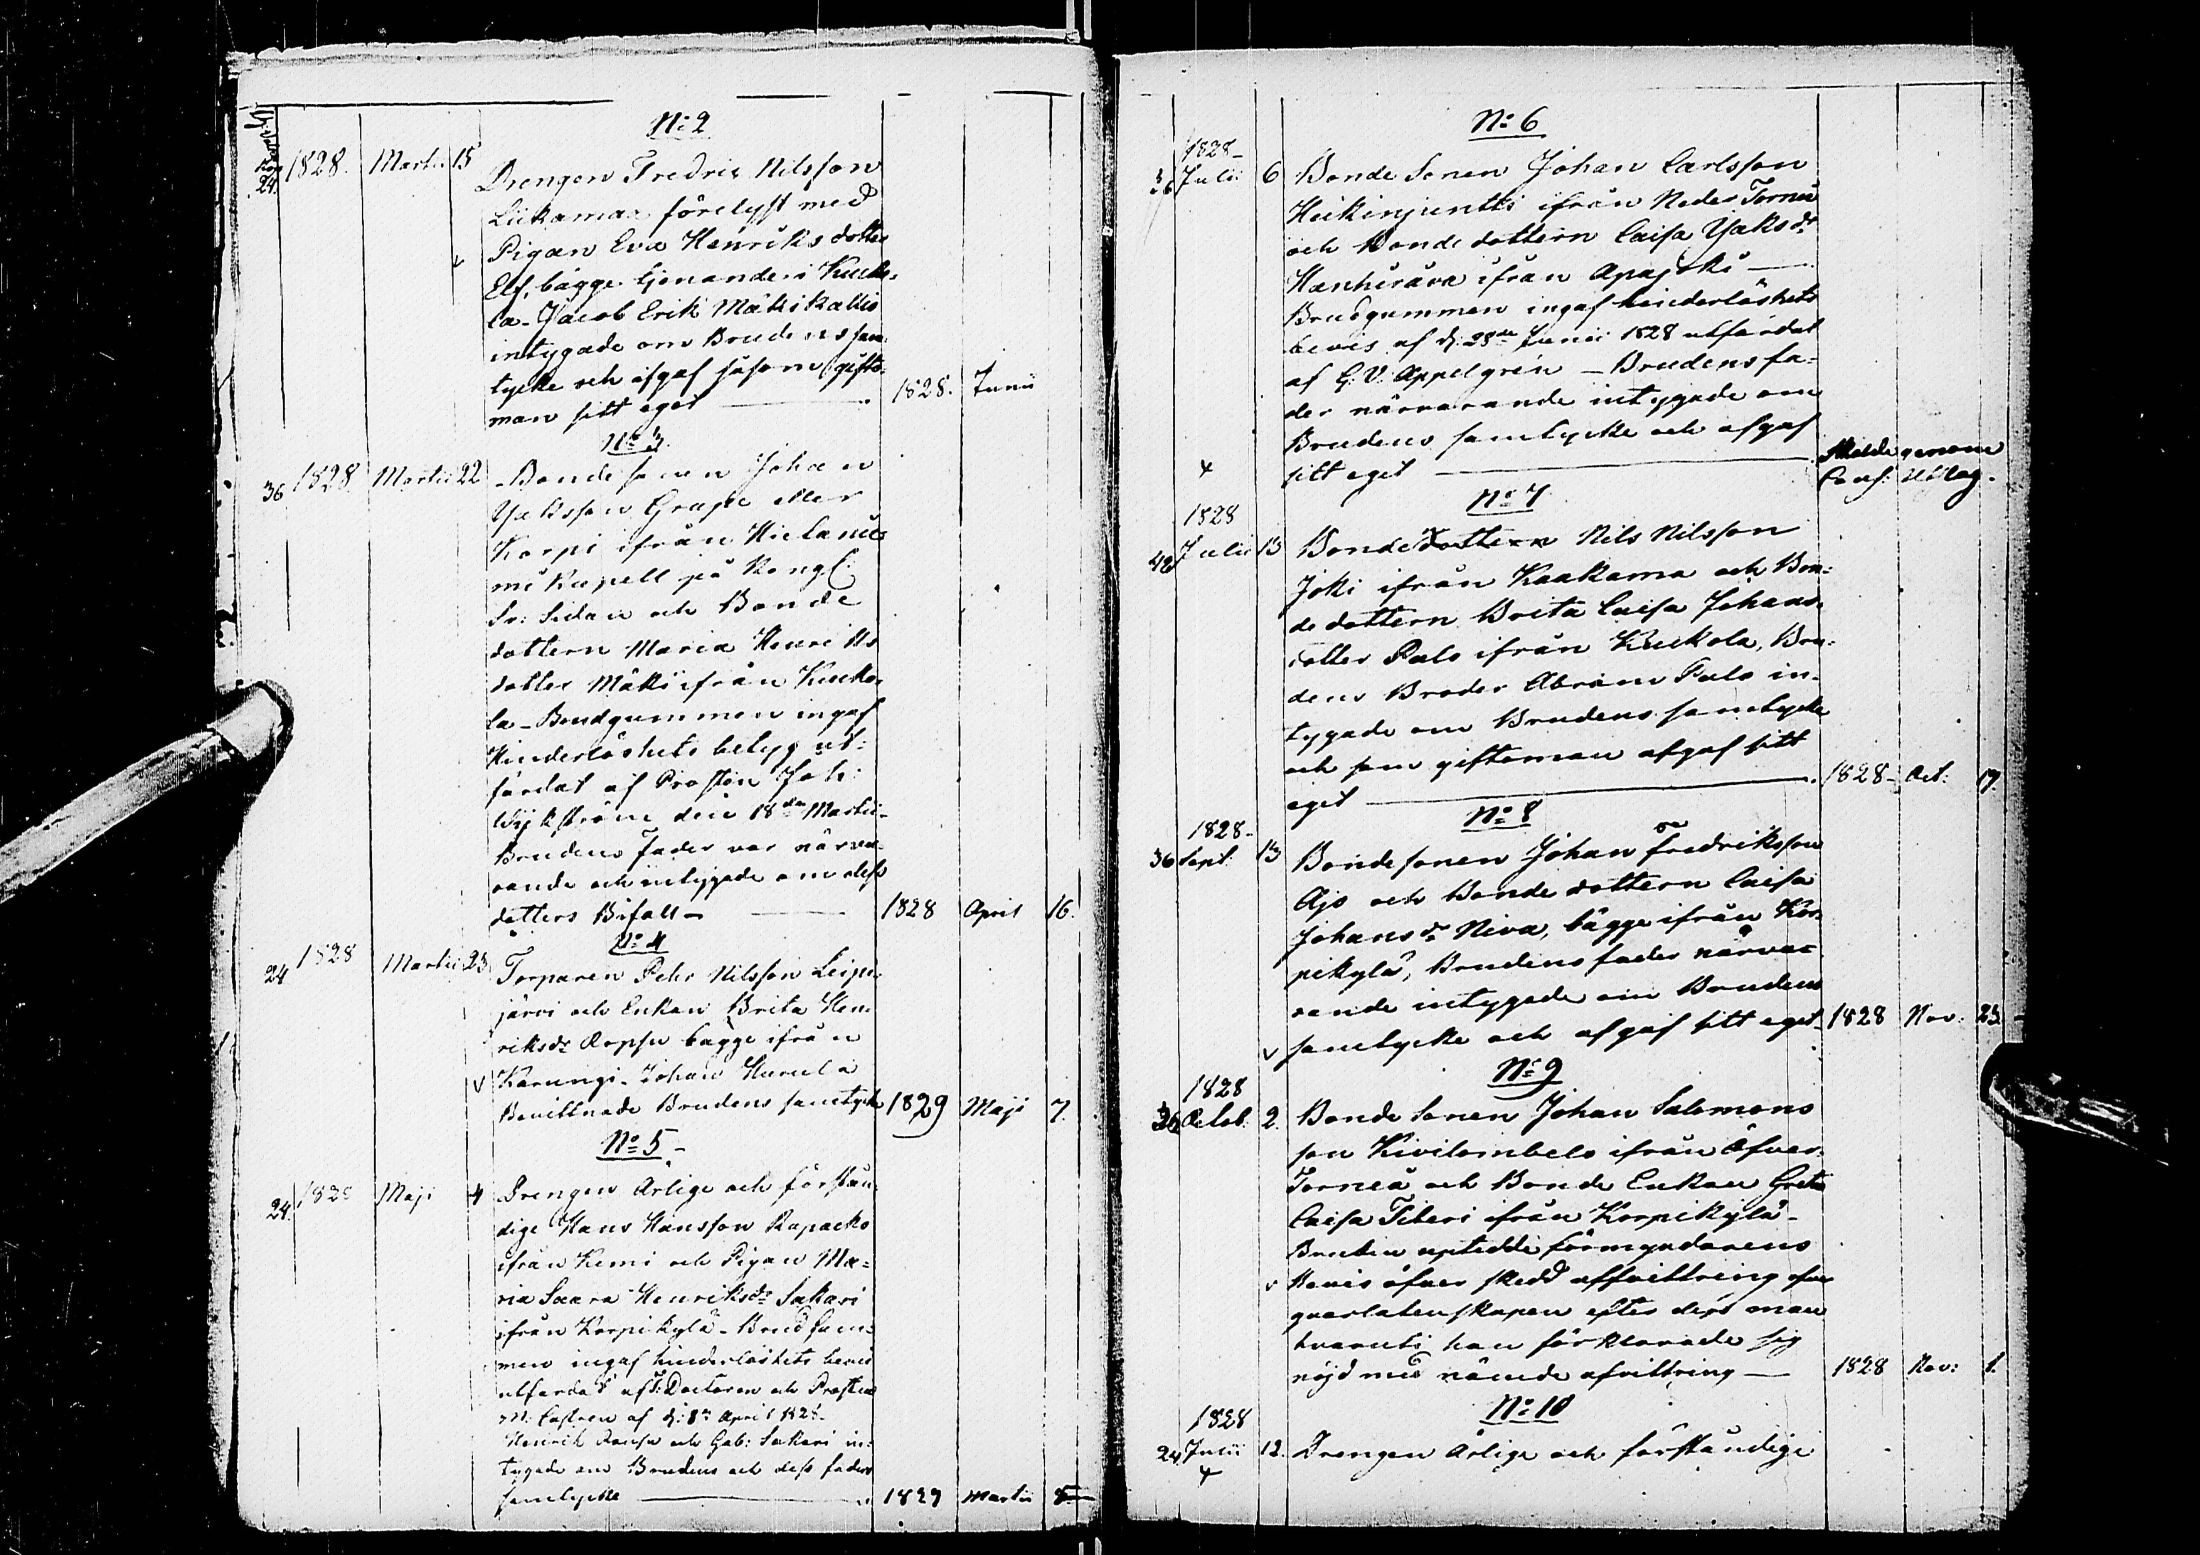 N:o 2
24. 1828. Martii 15 Drengen Fredric Nilsson
Liikamaa förelyst med
Pigan Eva Henriks dotter
Elf, bägge tjenande i Kucko-
la - Jacob Erik Mäkikallio
intygade om Brudens sam-
tycke och afgaf såsom gifto-
man sitt eget — 1828. Junii
N:o 3.
36 1828. Martii 22 Bonde sonen Johan
Isaksson Grape eller
Korpi ifrån Hietanie-
mi Kapell på Kongl:
Sv: Sidan och Bonde
dottern Maria Henriks
dotter Mäki ifrån Kucko-
la - Brudgummen ingaf
Hinderlöshets betyg ut-
färdat af Prosten Joh:
Wykström den 18de Martii -
Brudens Fader var närva-
rande och intygade om dess
dotters Bifall — 1828 April 16.
N:o 4
24 1828 Martii 23 Torparen Pehr Nilsson Leipi-
järvi och Enkan Brita Hen-
riksdr Ropsu bägge ifrån
v Karungi - Johan Hurula
Bevittnade Brudens samtycke 1829 Maji 7.
N:o 5 -
24. 1828 Maji 4 Drengen Ärlige och förstän-
dige Hans Hansson Rapacko
ifrån Kemi och Pigan Ma-
ria Saara Henriksdr Sakari
ifrån Korpikylä - Brudgum-
men ingaf hinderlöshets bevis
utfärdat af T: Doctoren och Prosten
M: Castren af d: 8de April 1828 -
Henrik och Gab: Sakari in-
tygade om Brudens och dess faders
samtycke — 1829 Martii 8
N:o 6
1828 -
36 Julii 6 Bonde Sonen Johan Carlsson
Heikinjuntti ifrån Neder Torneå
och Bonde dottern Caisa Isaksdr
Hanhirova ifrån Apajoki —
Brudgummen ingaf hinderlöshets
bevis af d: 28de Junii 1828 utfärdat
af G: V: Appelgrén - Brudens fa-
der närvarande intygade om
Brudens samtycke och afgaf
sitt eget — Skilde genom
Cons: Utslag.
N:o 7
1828
48 Julii 13 Bonde dottern Nils Nilsson
Joki ifrån Kaakama och Bon-
de dottern Brita Caisa Johans-
dotter Palo ifrån Kuckola, Bru-
dens Broder Abram Palo in-
tygade om Brudens samtycke
och som giftoman afgaf sitt
eget — 1828 - Oct: 17.
N:o 8
1828 -
36 Sept: 13 Bondesonen Johan Fredriksson
Ajo och Bonde dottern Caisa
Johansdr Niva, bägge ifrån Kor-
pikylä, Brudens fader närva-
rande intygade om Brudens
v samtycke och afgaf sitt eget - 1828 Nov: 23.
N:o 9
1828
36 Octob: 2. Bonde Sonen Johan Salomons
son Kivilombolo ifrån Öfver-
Torneå och Bonde Enkan Greta
Caisa Tiberi ifrån Korpikylä -
Bruden uptedde förmyndarens
v Bevis öfver skedd afvittring efter
qvarlåtenskapen efter dess man
hvaruti han förklarade sig
nöjd med nämde afvittring — 1828 Nov: 1.
N:o 10
1828
24 Julii 12. Drengen Ärlige och förståndige